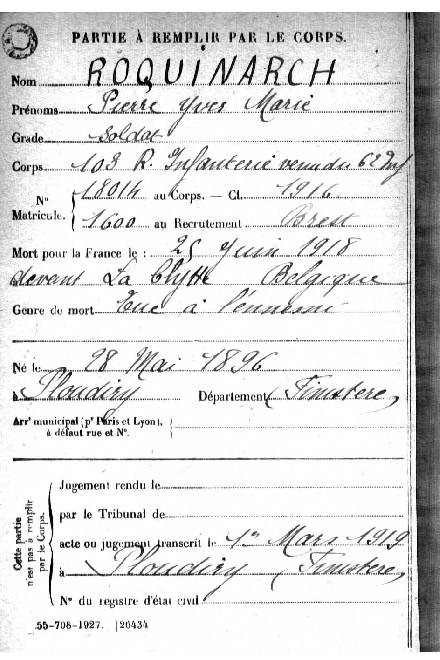 PARTIE À REMPLIR PAR LE CORPS.
Nom ROQUINARCH
Prénoms Pierre Yves Marie
Grade Soldat
Corps 103 R. Infanterie venu du 62 Inf
N° Matricule. { 18014 au Corps. — Cl. 1916
1600 au Recrutement Brest
Mort pour la France le : 25 Juin 1918
devant La Clytte Belgique
Genre de mort Tué à l'ennemi
Né le 28 Mai 1896
à Ploudiry Département Finistère
Arrt municipal (pr Paris et Lyon),
à défaut rue et N°.
Cette partie n'est pas à remplir par le Corps.
Jugement rendu le
par le Tribunal de
acte ou jugement transcrit le 1er Mars 1919
à Ploudiry (Finistère)
N° du registre d'état civil
55-708-1927. [26434